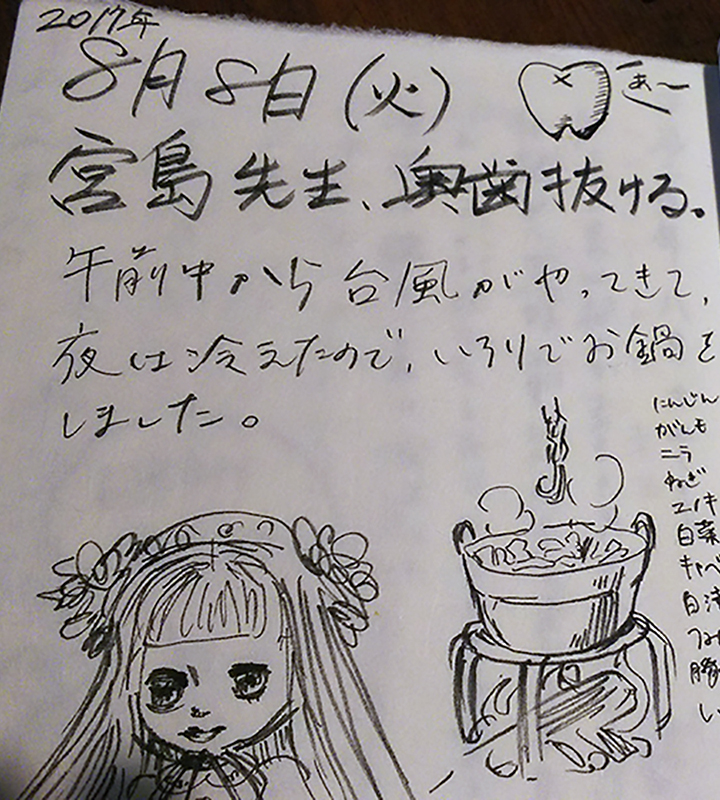 2017年
8月8日(火)
宮島先生、奥歯抜ける。
午前中から台風がやってきて、
夜は冷えたので、いろりでお鍋を
しました。
にんじん
がんも
ニラ
ねぎ
エノキ
白菜
キャベ